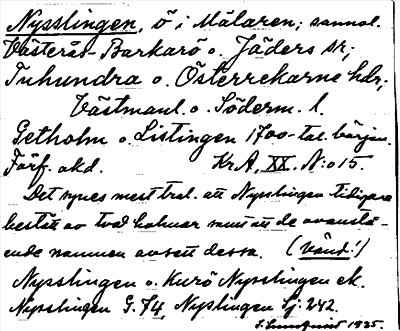 Nysslingen, ö i Mälaren; sannol.
Västerås-Barkarö o. Jäders sr;
Tuhundra o. Österrekarne hdr;
Västmanl. o. Söderm. l.
Getholm o. Listingen 1700-tal. börjn.
Förf. okd. Kr.A, XX. N:o 15.
Det synes mest trol. att Nysslingen tidigare
bestått av två holmar samt att de ovanstå-
ende namnen avsett dessa. (Vänd!)
Nysslingen o. Kurö Nysslingen ek.
Nysslingen G. 74, Nysslingen Sj. 242.
S. Lundqvist 1935.